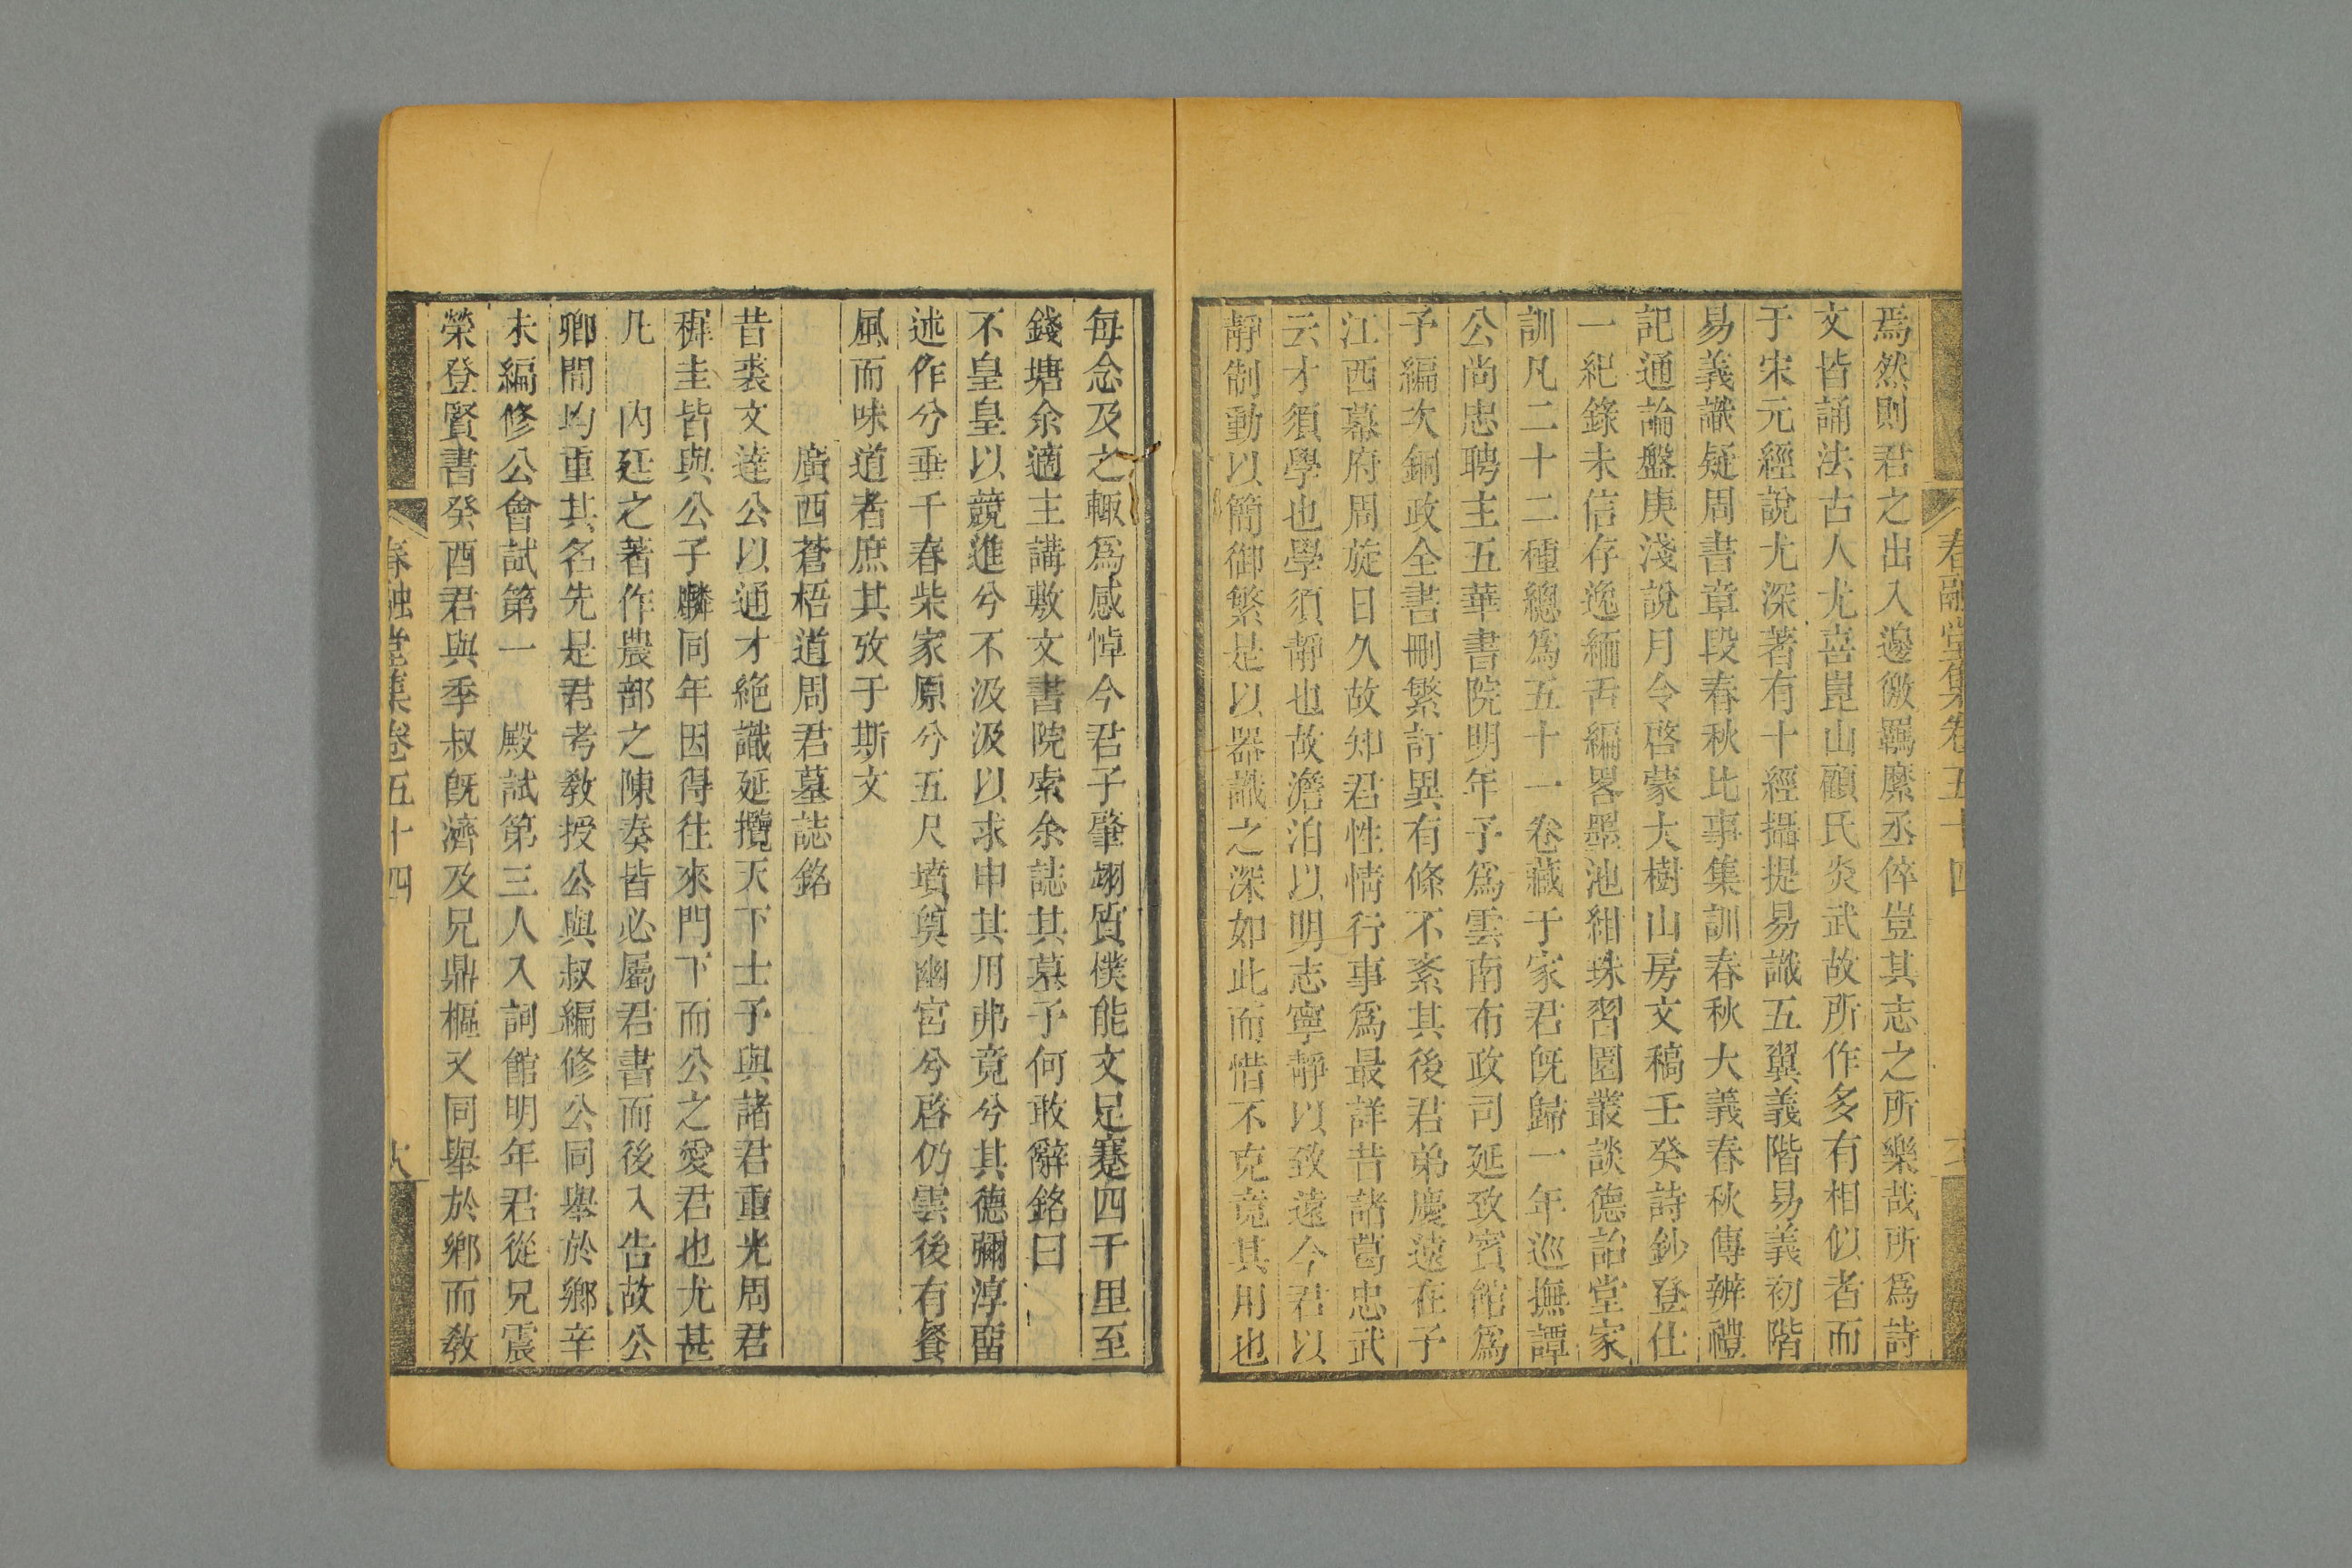 春融堂集卷五十四
焉然則君之出入邊徼羈縻丞倅豈其志之所樂哉所爲詩
文皆誦法古人尤喜崑山顧氏炎武故所作多有相似者而
于宋元經說尤深著有十經攝提易識五翼義階易義初階
易義識疑周書章段春秋比事集訓春秋大義春秋傳辨禮
記通論盤庚淺說月令啓蒙大樹山房文稿壬癸詩鈔登仕
一紀錄未信存逸緬舌編畧墨池紺珠習園叢談德詒堂家
訓凡二十二種總爲五十一卷藏于家君旣歸一年巡撫譚
公尚忠聘主五華書院明年予爲雲南布政司延致賓館爲
予編次銅政全書刪繁訂異有條不紊其後君弟慶遠在予
江西幕府周旋日久故知君性情行事爲最詳昔諸葛忠武
云才須學也學須靜也故澹泊以明志寧靜以致遠今君以
靜制動以簡御繁是以器識之深如此而惜不克竟其用也
每念及之輙爲感悼今君子肇翊質僕能文足蹇四千里至
錢塘余適主講敷文書院索余誌其墓予何敢辭銘曰
不皇皇以競進兮不汲汲以求申其用弗竟兮其德彌淳畱
述作兮垂千春柴家原兮五尺墳奠幽宮兮啓仍雲後有餐
風而味道者庶其攷于斯文
廣西蒼梧道周君墓誌銘
昔裘文達公以通才絶識延攬天下士予與諸君重光周君
穉圭皆與公子麟同年因得往來門下而公之愛君也尤甚
凡 內廷之著作農部之陳奏皆必屬君書而後入告故公
卿間均重其名先是君考敎授公與叔編修公同舉於鄉辛
未編修公會試第一 殿試第三人入詞館明年君從兄震
榮登賢書癸酉君與季叔旣濟及兄鼎樞又同舉於鄉而敎
春融堂集卷五十四